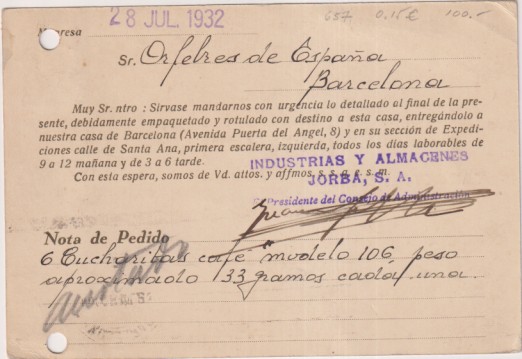 28 JUL. 1932
657 0.15 € 100.-
Sr. Orfebres de España
Barcelona
Muy Sr. ntro : Sírvase mandarnos con urgencia lo detallado al final de la pre-
sente, debidamente empaquetado y rotulado con destino a esta casa, entregándolo a
nuestra casa de Barcelona (Avenida Puerta del Angel, 8) y en su sección de Expedi-
ciones calle de Santa Ana, primera escalera, izquierda, todos los días laborables de
9 a 12 mañana y de 3 a 6 tarde.
Con esta espera, somos de Vd. attos. y affmos. s. s. q. e. s. m.
INDUSTRIAS Y ALMACENES
JORBA, S. A.
El Presidente del Consejo de Administración
Nota de Pedido
6 Cucharitas café "modelo 106, peso
aproximado 33 gramos cada una